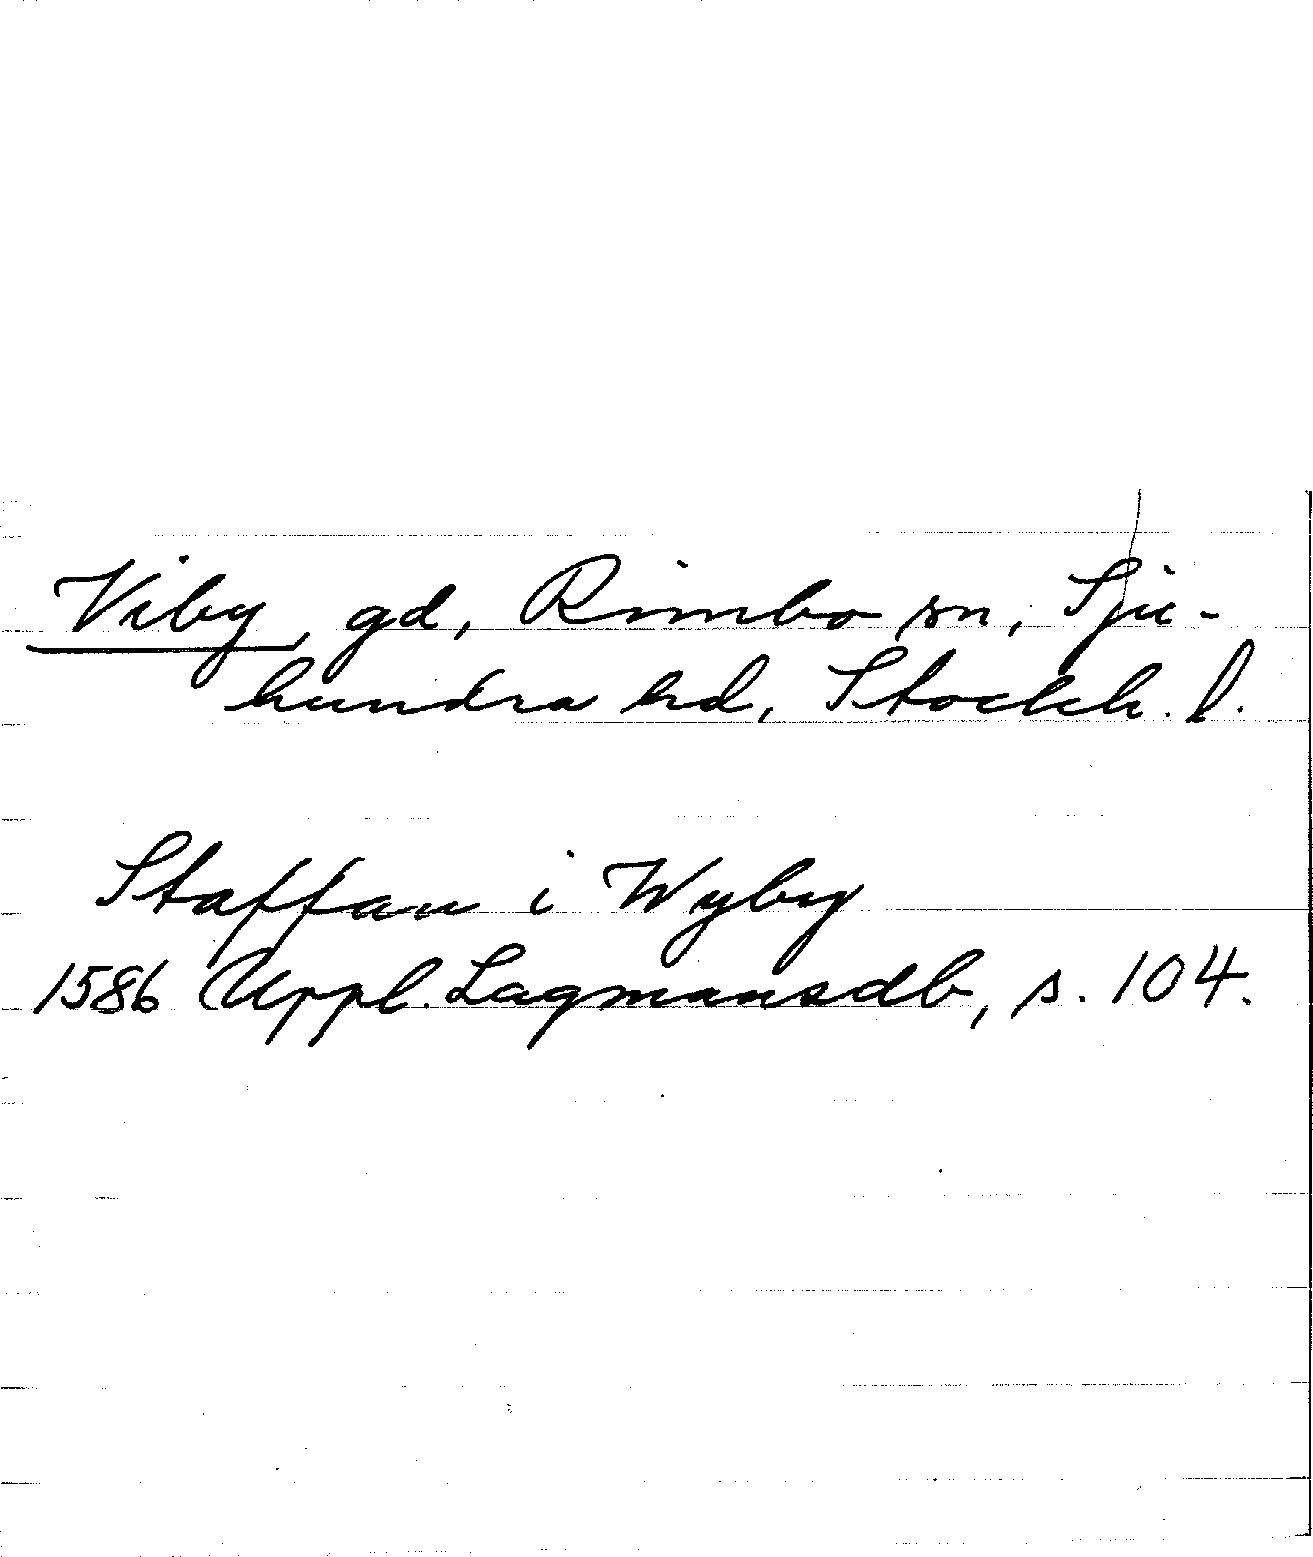 Viby, gd, Rimbo sn, Sju-
hundra hd, Stockh. l.
Staffan i Wyby
1586 Uppl. Lagmansdb, s. 104.